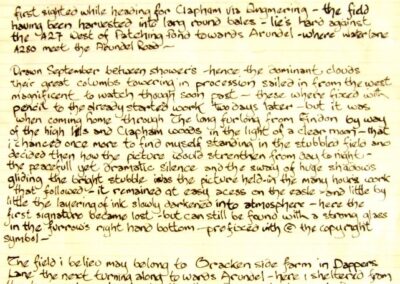 first sighted while heading for Clapham via Angmering - the field
having been harvested into long round bales - lie's hard against
the A27 West of Patching Pond towards Arundel - where water lane
A280 meet the Arundel Road ~
Drawn September between showers - hence the dominant clouds
their great columbs towering in procession sailed in from the west
magnificent to watch though soon past - these where fixed with
pencil to the already started work two days later - but it was
when coming home - through The long furlong from Findon by way
of the high hills and Clapham woods in the light of a clear moon - that
i chanced once more to find myself standing in the stubbled field and
decided then how the picture would strenthen from day to night -
the peacefull yet dramatic silence and the sway of huge shadows
gliding the bright stubble was the picture held - in the many hours work
that followed - it remained at easy acess on the easle - and little by
little the layering of ink slowly darkened into atmosphere - here the
first signature became lost - but can still be found with a strong glass
in the furrow's right hand bottom - prefixed with @ the copyright
symbol -
The field i believe may belong to Bracken side farm in Dappers
Lane - the next turning along towards Arundel - here i sheltered from